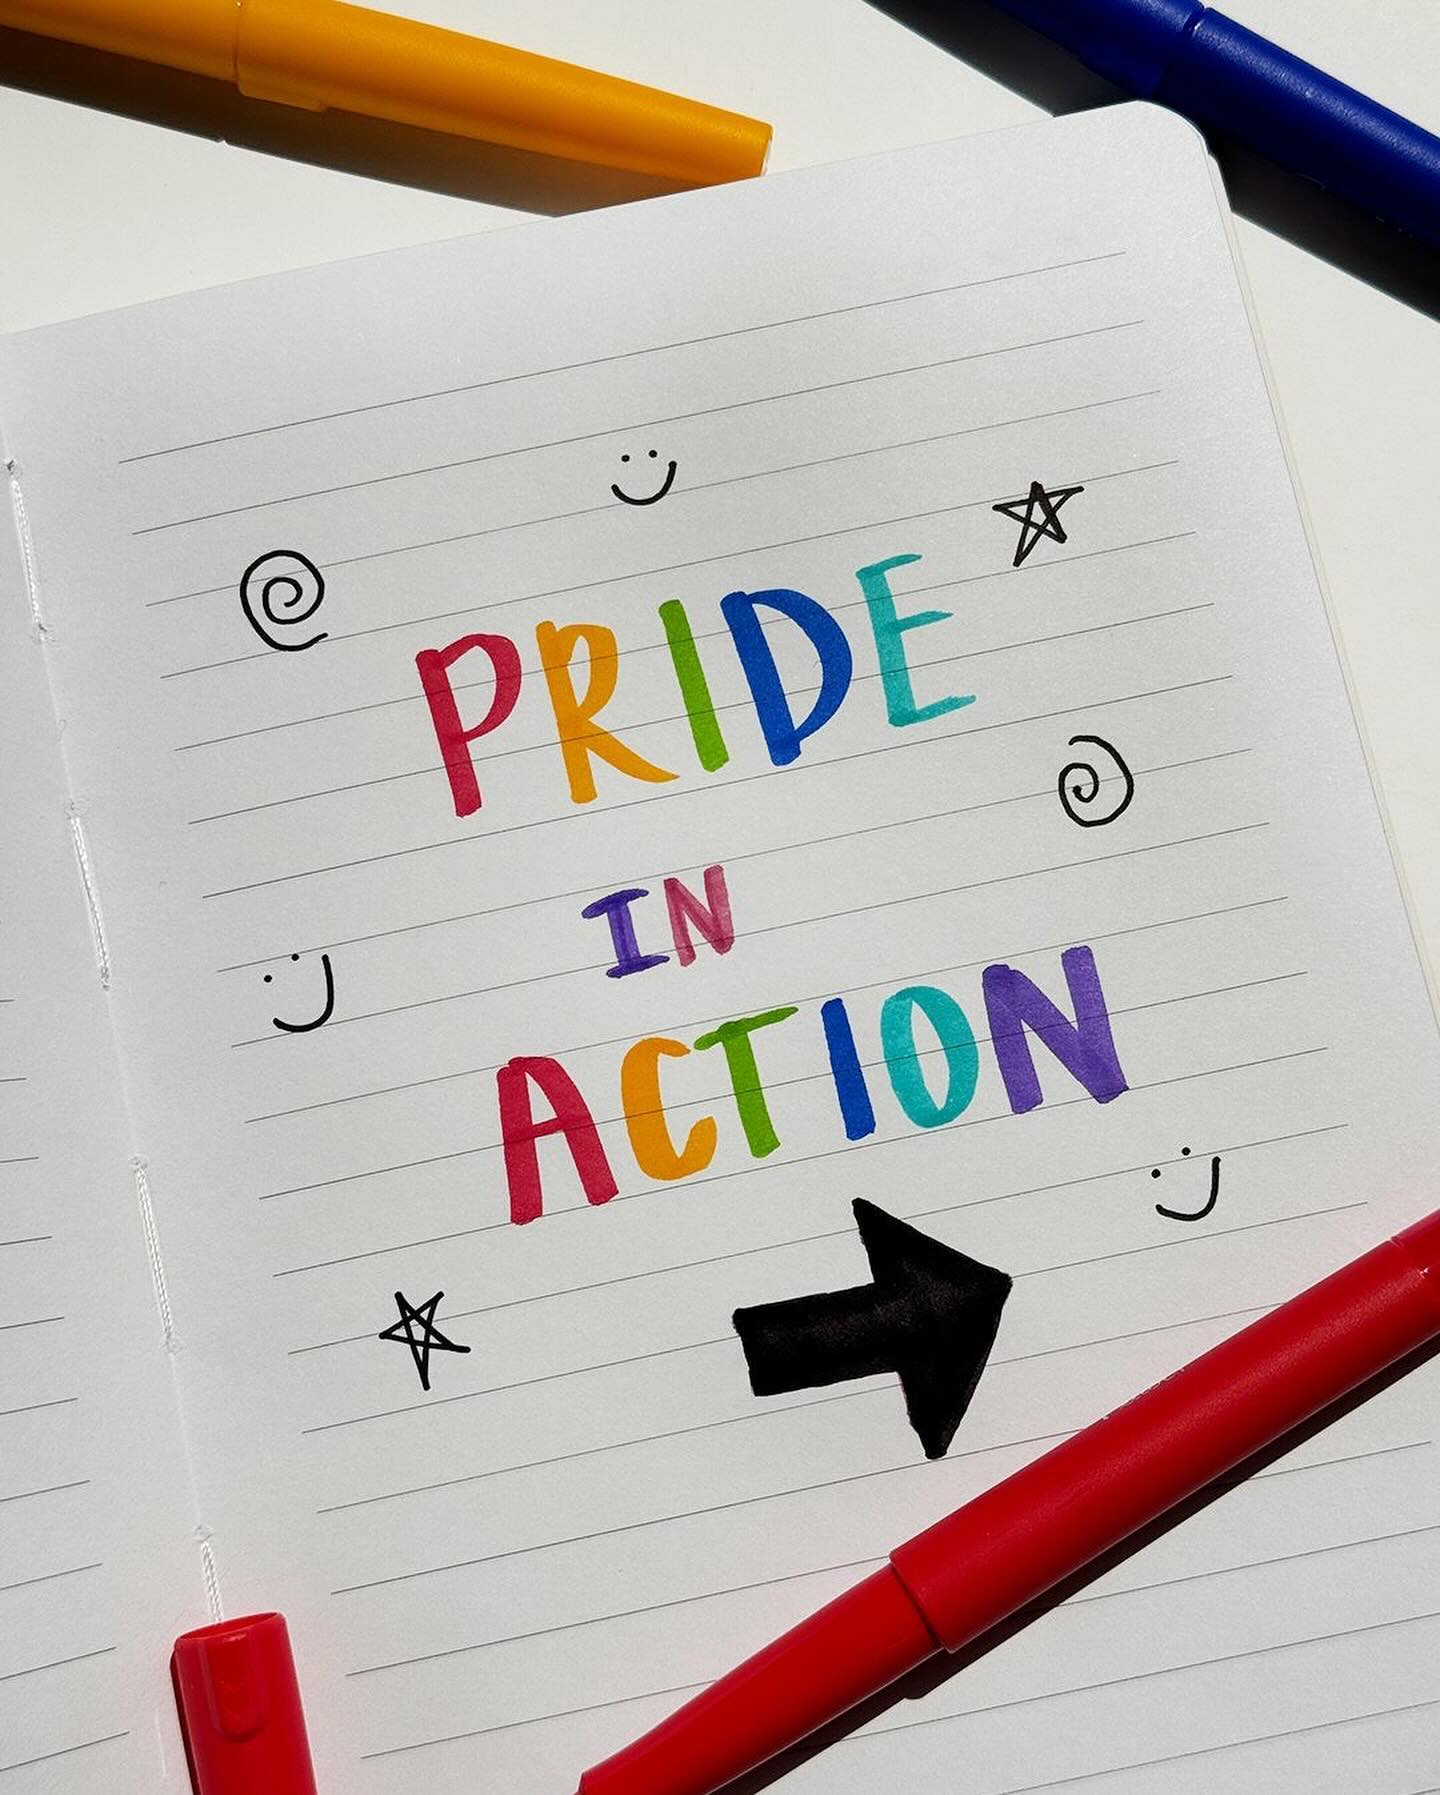 PRIDE
IN
ACTION